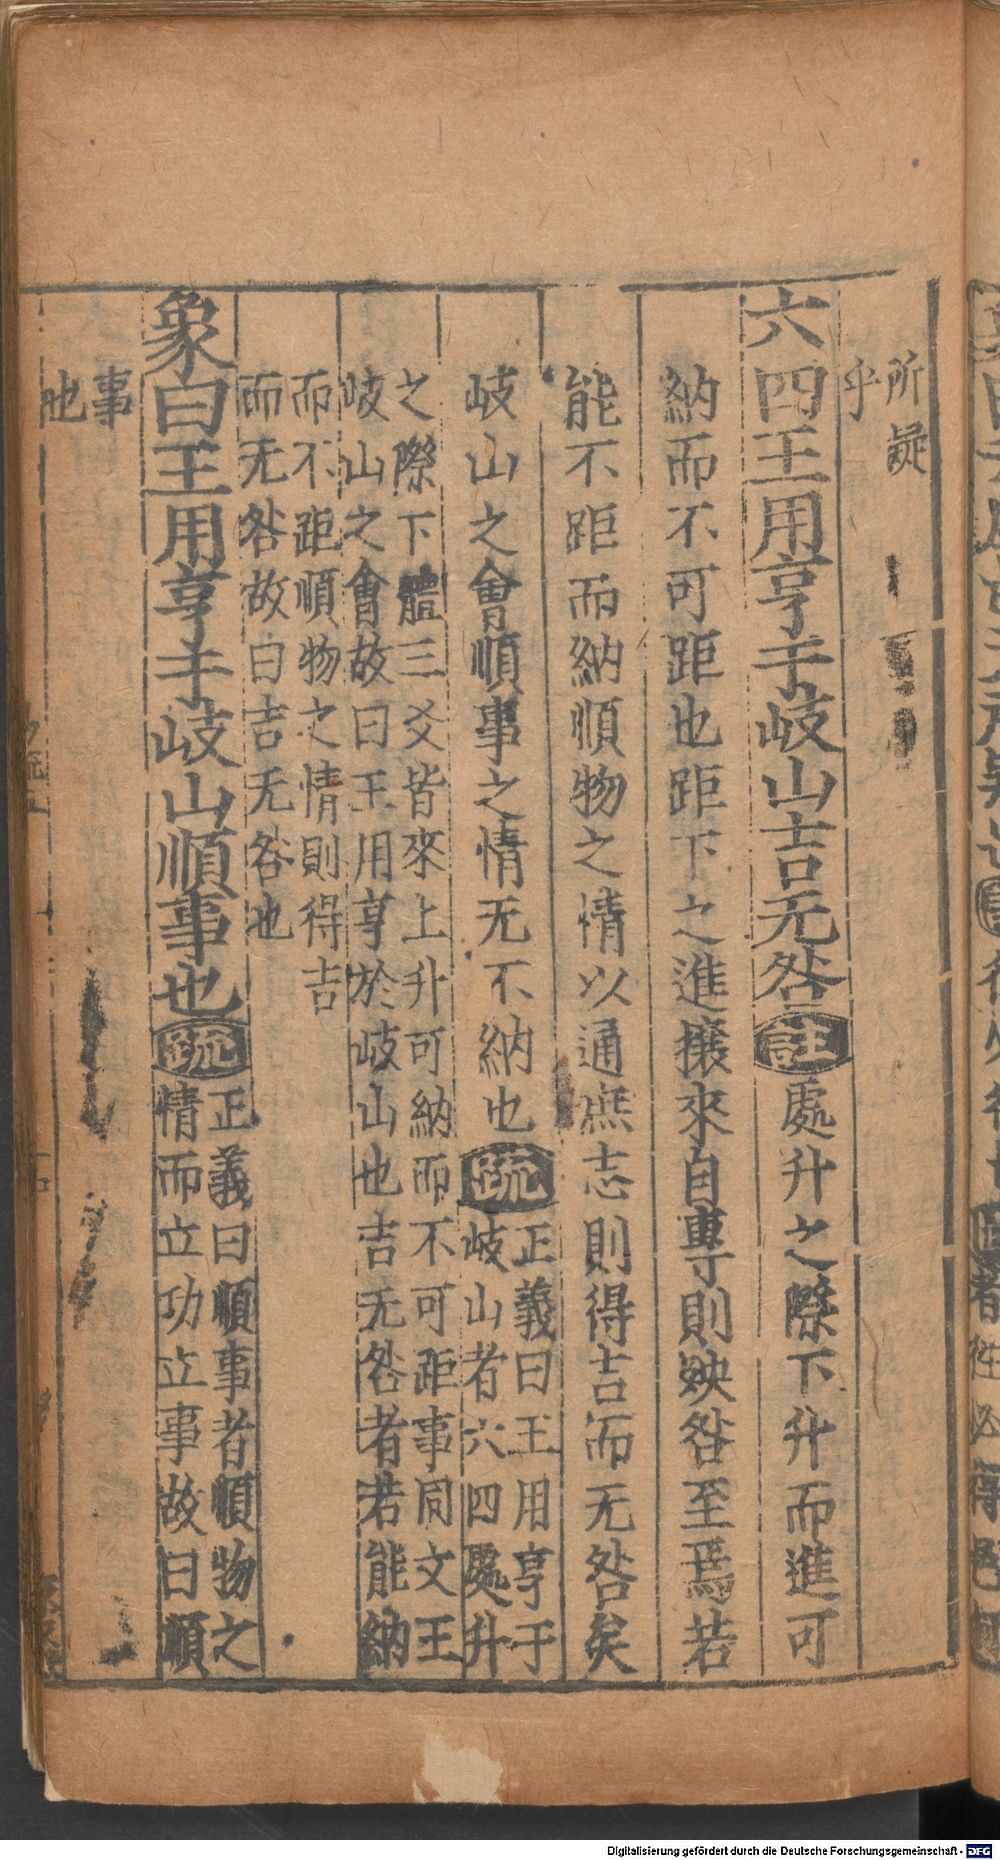 所疑
乎
六四王用亨于岐山吉无咎註處升之際下升而進可
納而不可距也距下之進攘來自專則殃咎至焉若
能不距而納順物之情以通庶志則得吉而无咎矣
岐山之會順事之情无不納也疏正義曰王用亨于
岐山者六四處升
之際下體三爻皆來上升可納而不可距事同文王
岐山之會故曰王用亨於岐山也吉无咎者若能納
而不距順物之情則得吉
而无咎故曰吉无咎也
象曰王用亨于岐山順事也疏正義曰順事者順物之
情而立功立事故曰順
事
也
Digitalisierung gefördert durch die Deutsche Forschungsgemeinschaft - DFG